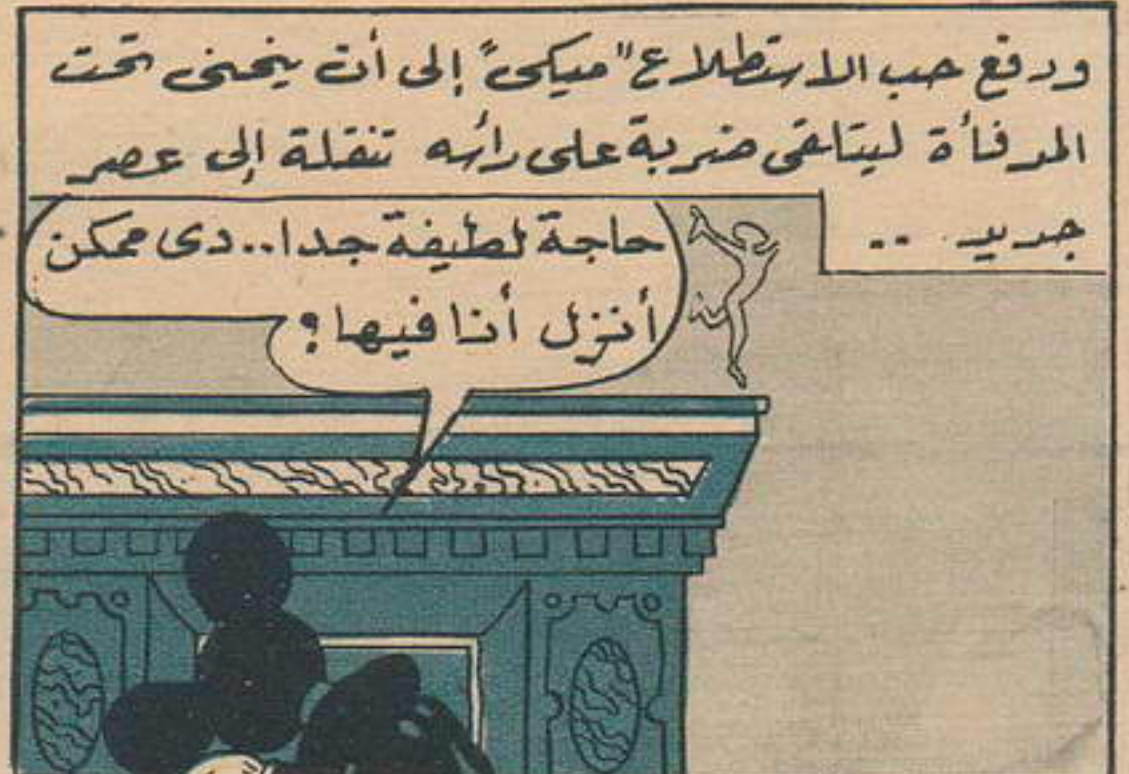 ودفع حب الاستطلاع "ميكى" إلى أن ينحنى تحت
المدفأة ليتلقى ضربة على رأسه تنقلة إلى عصر
جديد ..
حاجة لطيفة جدا.. دى ممكن
أنزل أنا فيها؟